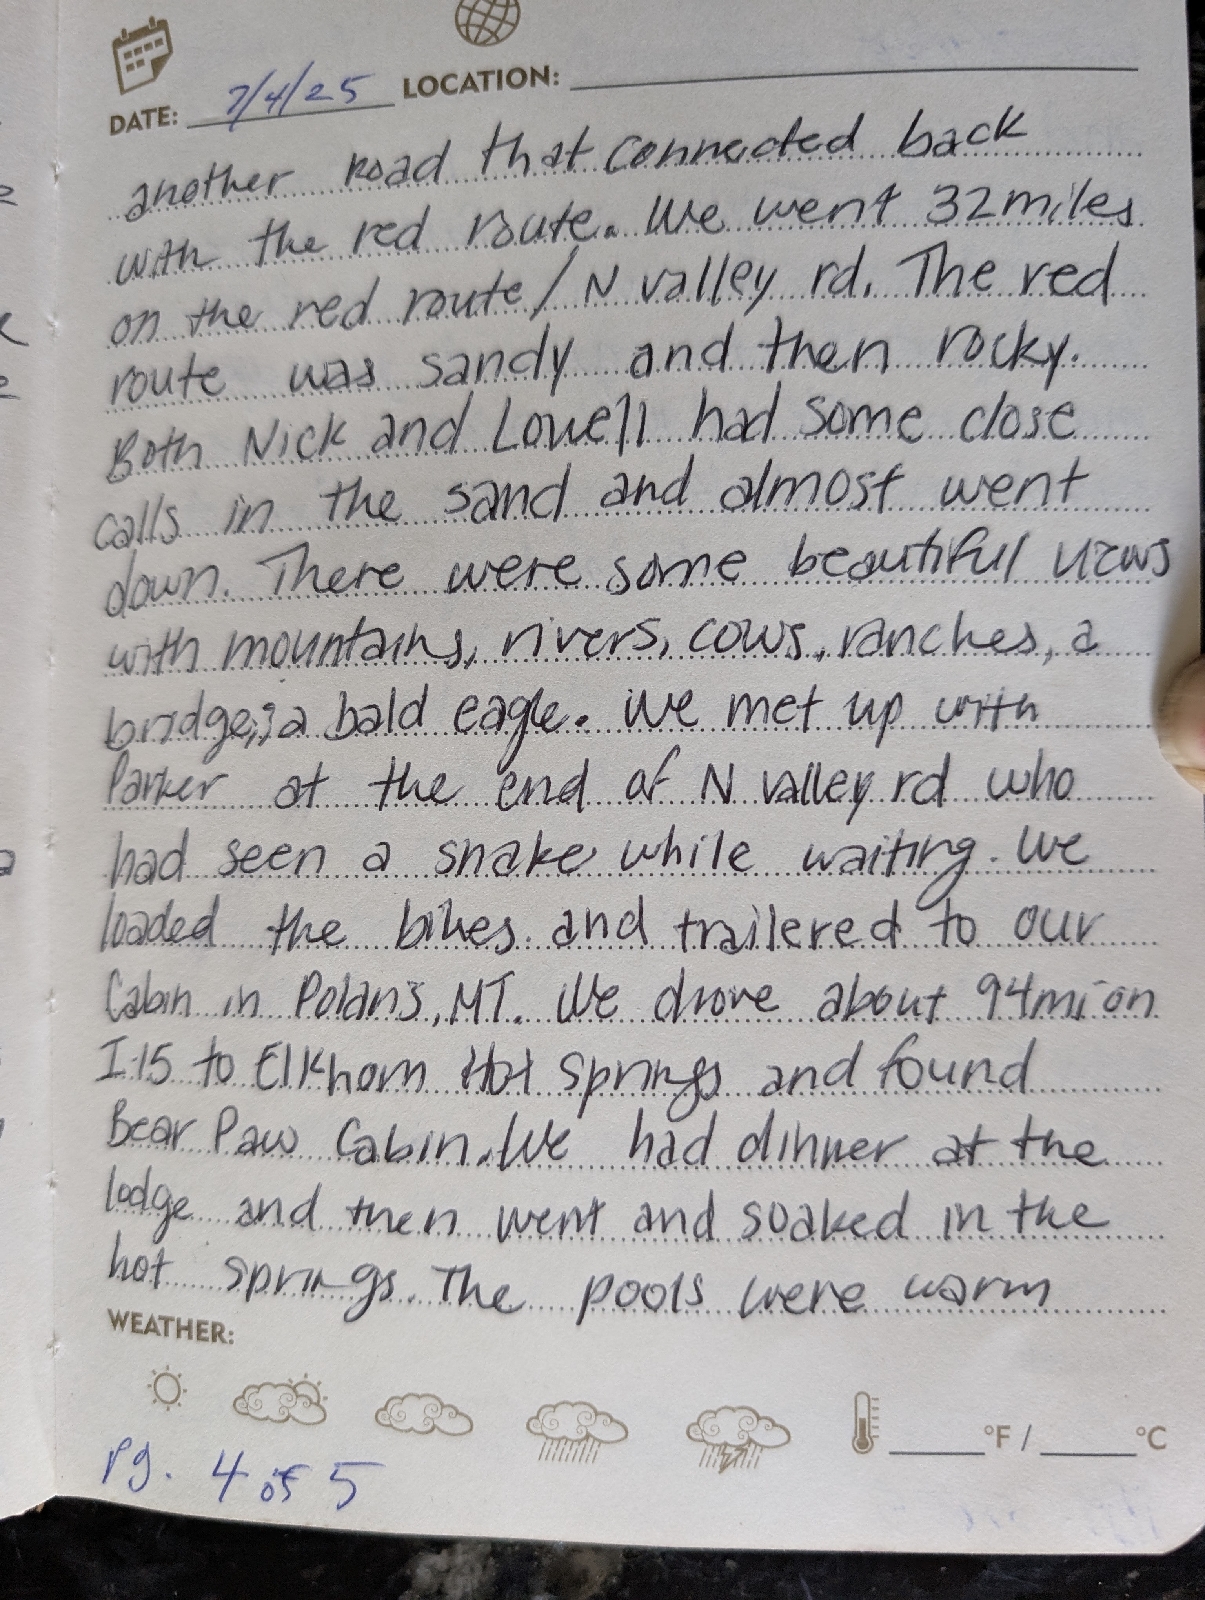 DATE: 7/4/25 LOCATION:
another road that connected back
with the red route. We went 32 miles
on the red route / N valley rd. The red
route was sandy and then rocky.
Both Nick and Lowell had some close
calls in the sand and almost went
down. There were some beautiful views
with mountains, rivers, cows, ranches, a
bridge, & a bald eagle. We met up with
Parker at the end of N valley rd who
had seen a snake while waiting. We
loaded the bikes and trailered to our
Cabin in Polaris, MT. We drove about 94mi on
I-15 to Elkhorn Hot Springs and found
Bear Paw Cabin. We had dinner at the
lodge and then went and soaked in the
hot springs. The pools were warm
WEATHER:
°F / °C
pg. 4 of 5